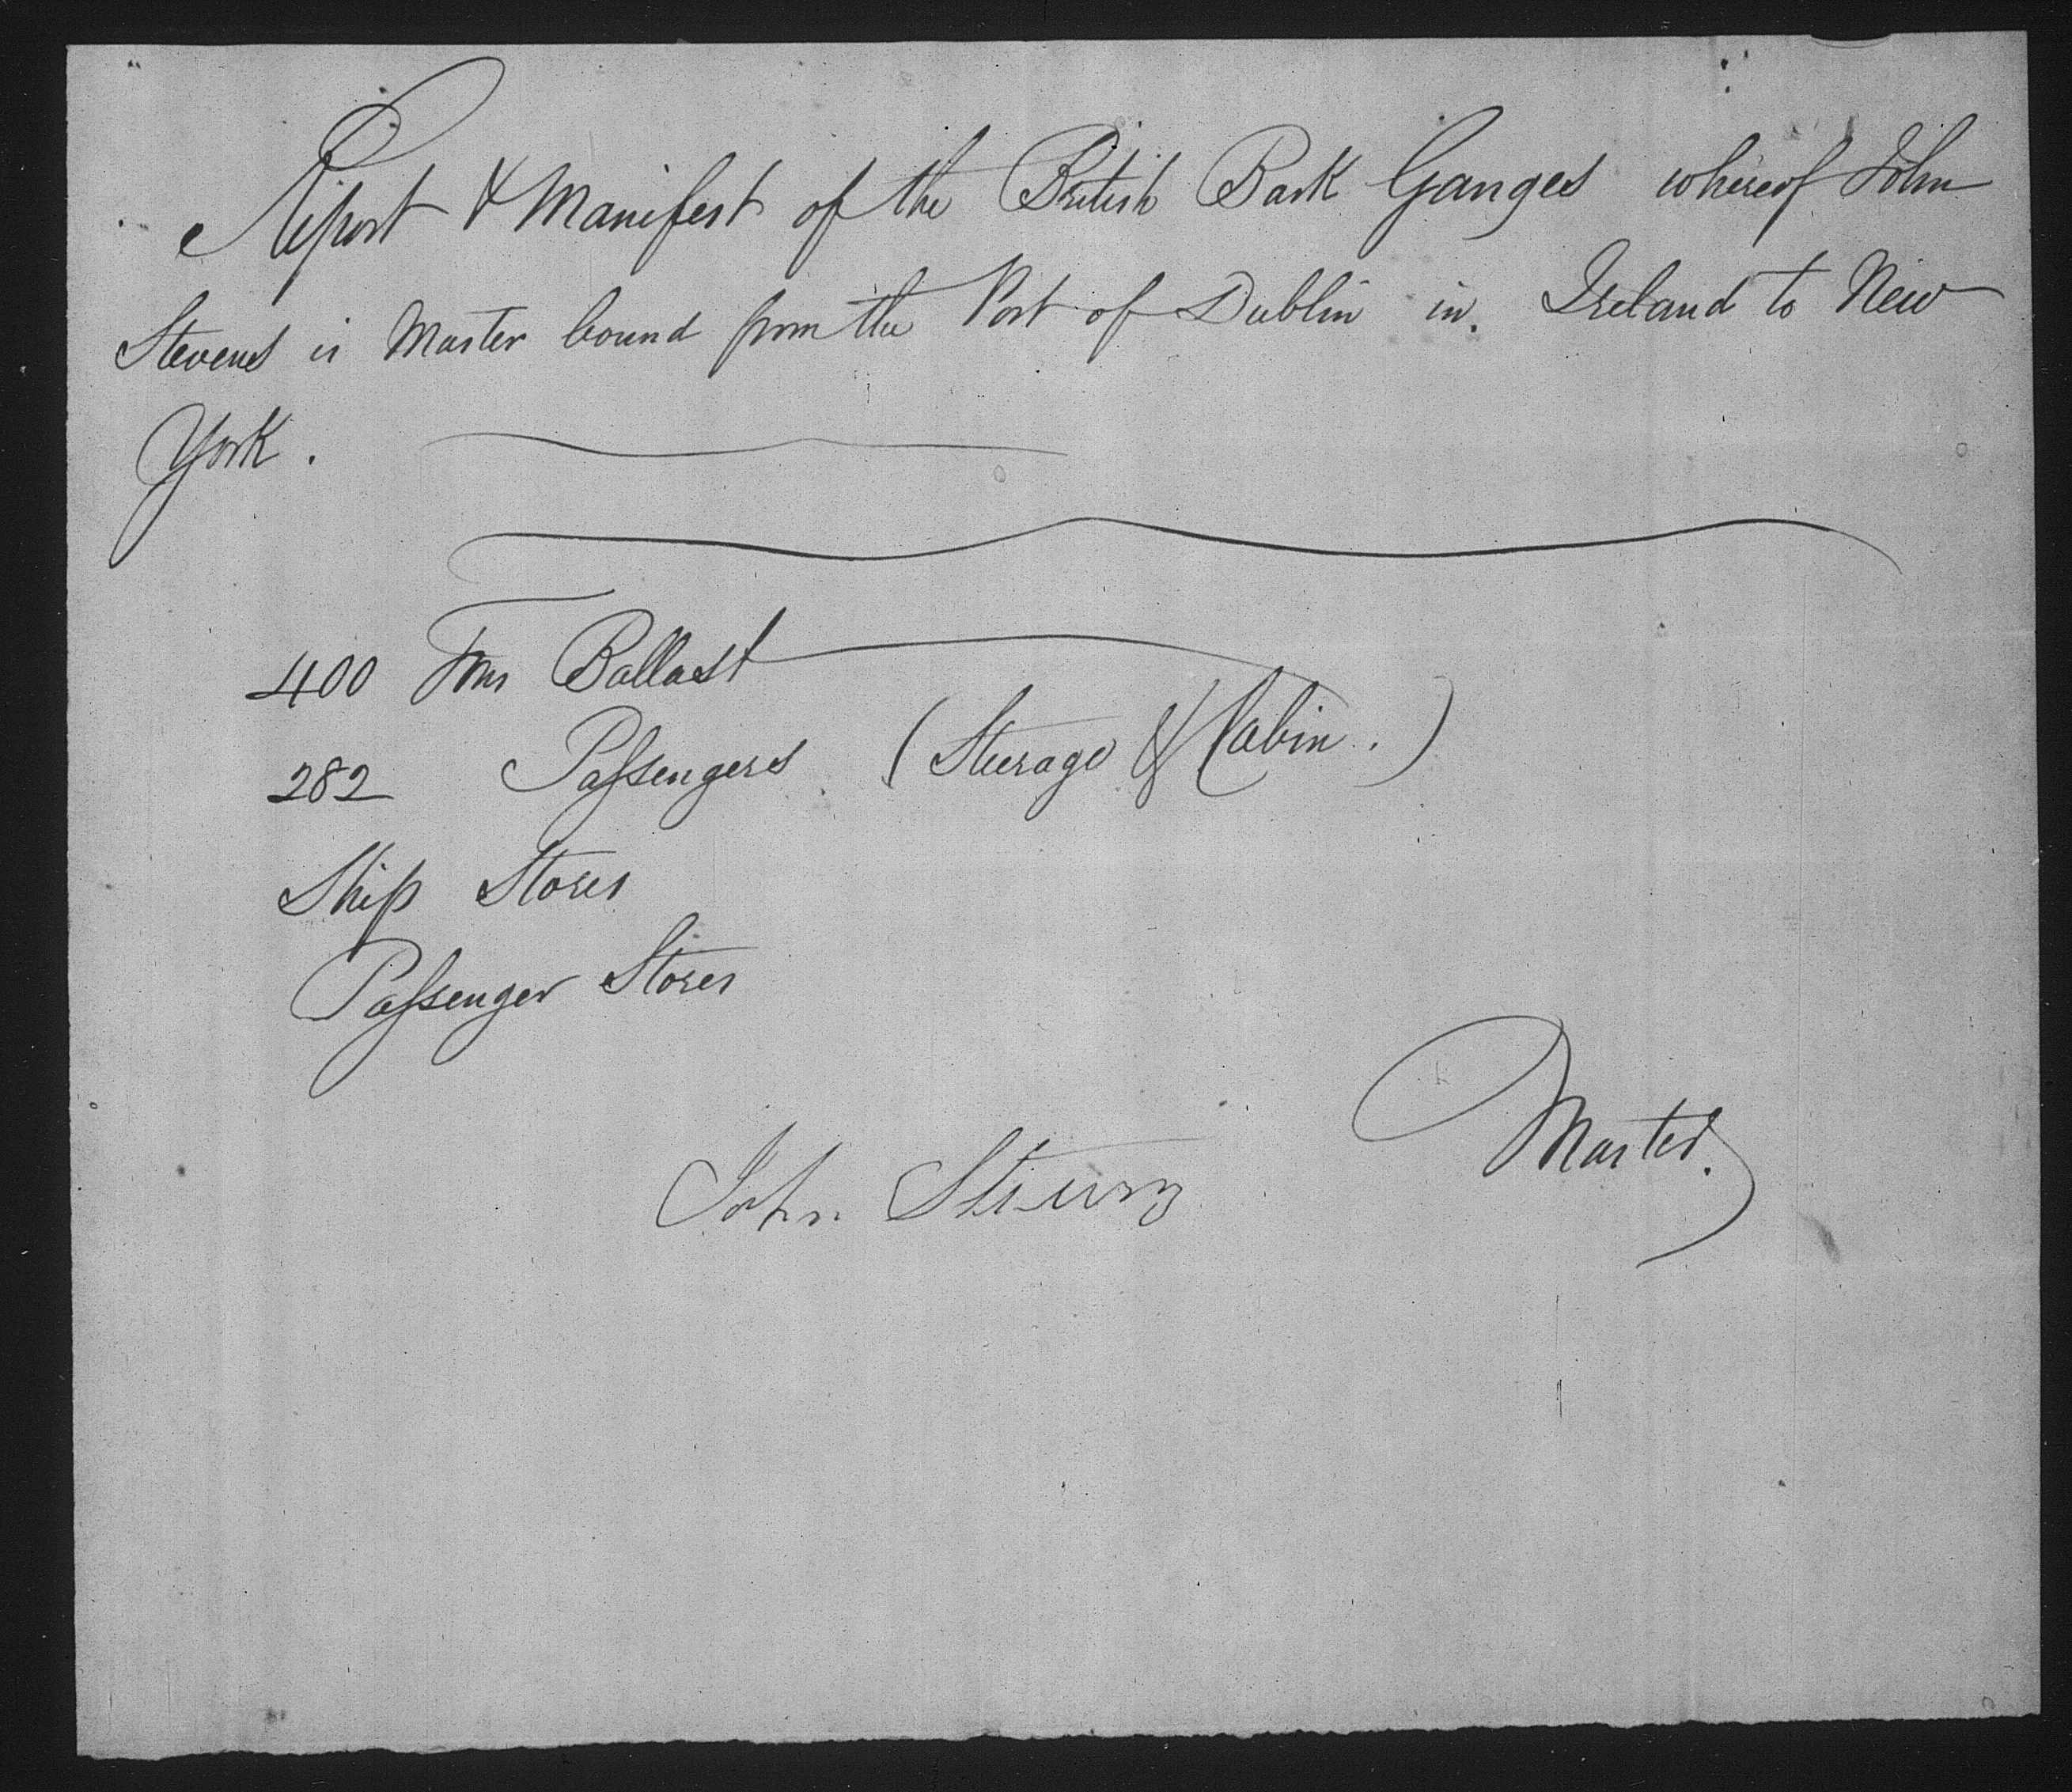 Report & Manifest of the British Bark Ganges whereof John
Stevens is Master bound from the Port of Dublin in Ireland to New
York.
400 Tons Ballast
282 Passengers (Steerage & Cabin.)
Ship Stores
Passenger Stores
John Stevens Master.